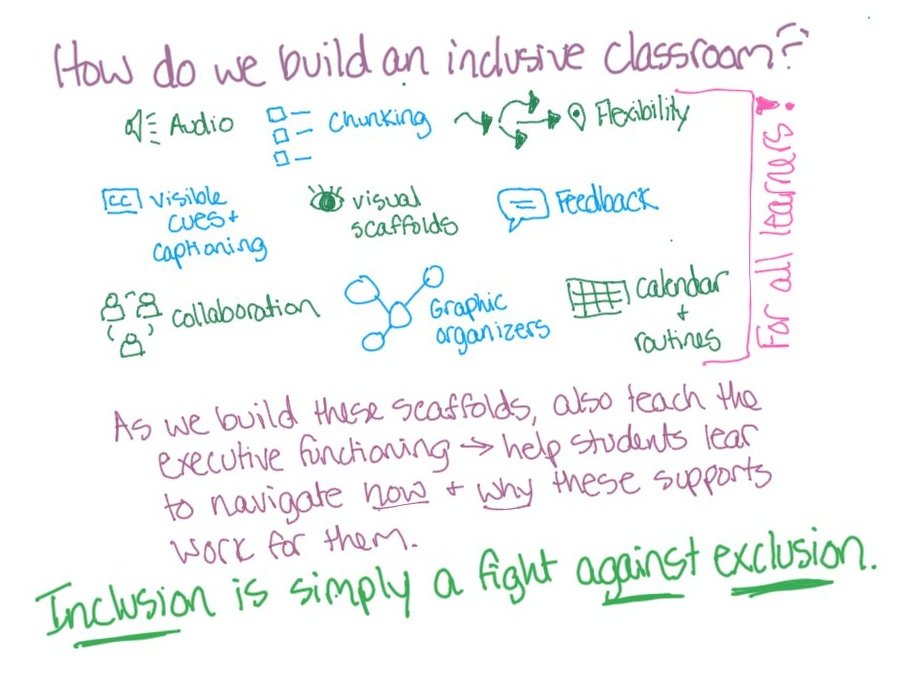 How do we build an inclusive classroom?
Audio
Chunking
Flexibility
CC visible
cues +
captioning
visual
scaffolds
Feedback
collaboration
Graphic
organizers
calendar
+
routines
For all learners!
As we build these scaffolds, also teach the
executive functioning → help students lear
to navigate how + why these supports
work for them.
Inclusion is simply a fight against exclusion.